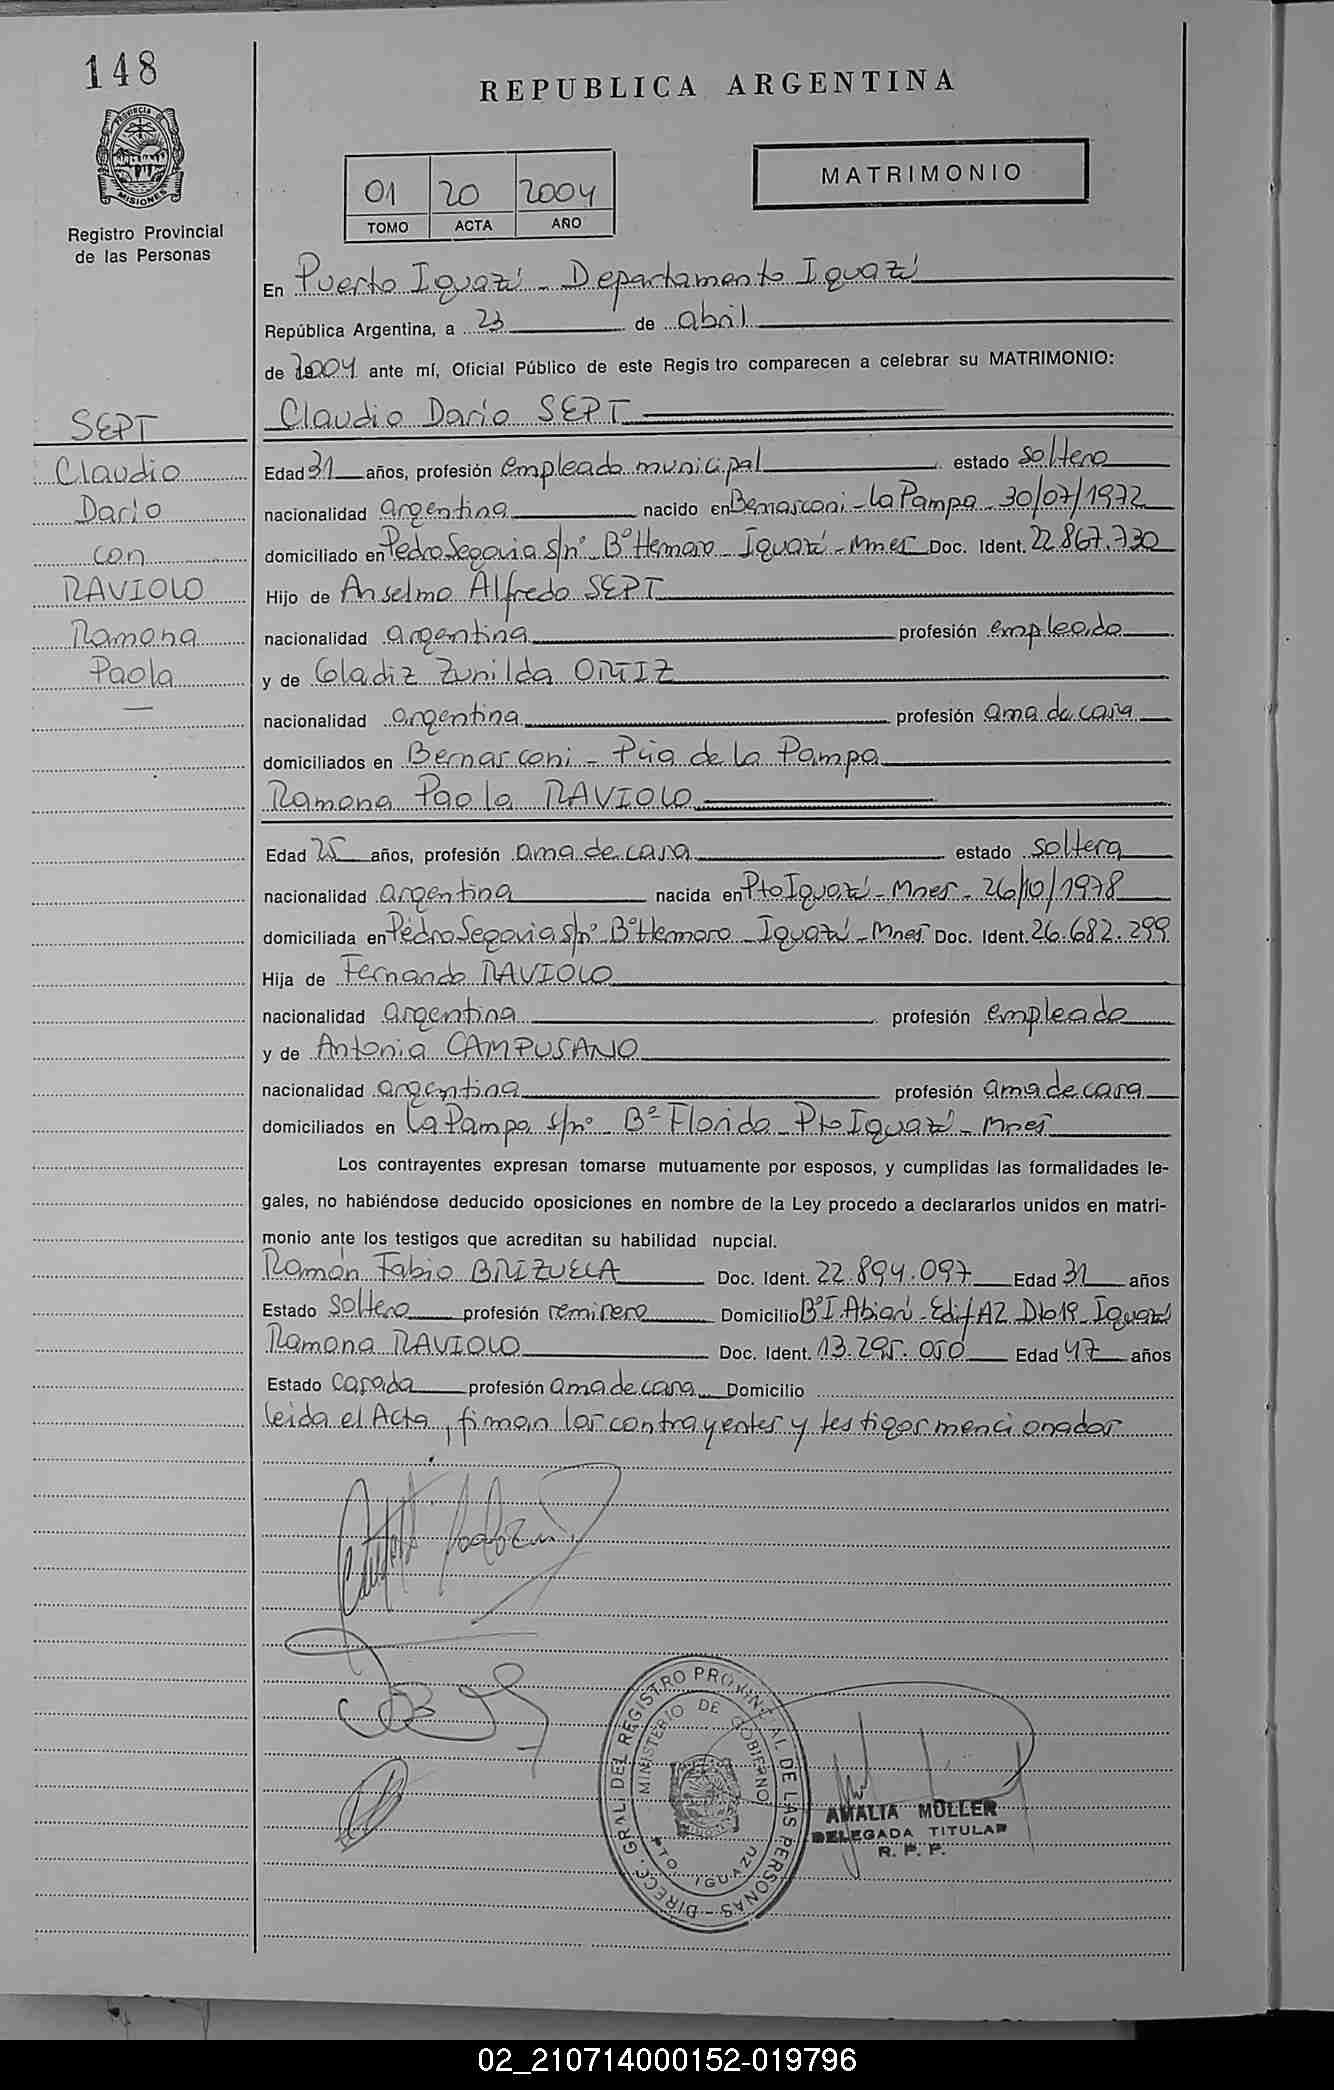 148
REPUBLICA ARGENTINA
PROVINCIA DE
MISIONES
Registro Provincial
de las Personas
01 20 2004
TOMO ACTA AÑO
MATRIMONIO
En Puerto Iguazú - Departamento Iguazú
República Argentina, a 23 de abril
de 2004 ante mí, Oficial Público de este Registro comparecen a celebrar su MATRIMONIO:
Claudio Darío SEPT
SEPT
Claudio
Darío
con
RAVIOLO
Ramona
Paola
Edad 31 años, profesión empleado municipal estado soltero
nacionalidad argentina nacido en Bernasconi - La Pampa - 30/07/1972
domiciliado en Pedro Segovia s/nº Bº Hermoso - Iguazú - Mnes Doc. Ident. 22.867.730
Hijo de Anselmo Alfredo SEPT
nacionalidad argentina profesión empleado
y de Gladiz Zunilda ORTIZ
nacionalidad argentina profesión ama de casa
domiciliados en Bernasconi - Pcia de La Pampa
Ramona Paola RAVIOLO
Edad 25 años, profesión ama de casa estado soltera
nacionalidad argentina nacida en Pto Iguazú - Mnes - 26/10/1978
domiciliada en Pedro Segovia s/nº Bº Hermoso - Iguazú - Mnes Doc. Ident. 26.682.299
Hija de Fernando RAVIOLO
nacionalidad argentina profesión empleado
y de Antonia CAMPUSANO
nacionalidad argentina profesión ama de casa
domiciliados en La Pampa s/nº - Bº Florida - Pto Iguazú - Mnes
Los contrayentes expresan tomarse mutuamente por esposos, y cumplidas las formalidades le-
gales, no habiéndose deducido oposiciones en nombre de la Ley procedo a declararlos unidos en matri-
monio ante los testigos que acreditan su habilidad nupcial.
Ramón Fabio BRIZUELA Doc. Ident. 22.894.097 Edad 31 años
Estado soltero profesión remisero Domicilio Bº I. Abiarú - Edif A2 Dto 19 - Iguazú
Ramona RAVIOLO Doc. Ident. 13.295.050 Edad 47 años
Estado casada profesión ama de casa Domicilio
leida el Acta, firman los contrayentes y testigos mencionados
DIRECC. GRAL. DEL REGISTRO PROVINCIAL DE LAS PERSONAS
MINISTERIO DE GOBIERNO
PTO IGUAZU
AMALIA MULLER
DELEGADA TITULAR
R. P. P.
02_210714000152-019796